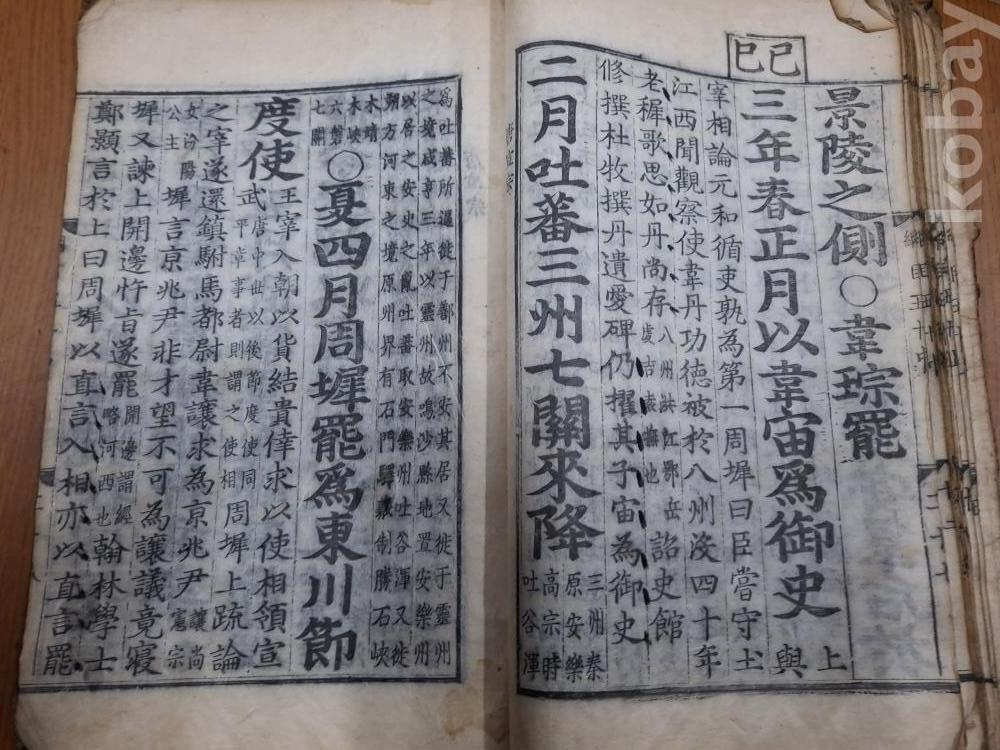 己巳
景陵之側○韋琮罷
三年春正月以韋宙爲御史上與
宰相論元和循吏孰為第一周墀曰臣嘗守土
江西聞觀察使韋丹功德被於八州沒四十年
老穉歌思如丹尚存八州洪江鄂岳虔吉袁撫也詔史館
修撰杜牧撰丹遺愛碑仍擢其子宙為御史
二月吐蕃三州七關來降三州秦原安樂高宗時吐谷渾
爲吐蕃所逼徙于鄯州不安其居又徙于靈州
之境咸亨三年以靈州故鳴沙縣地置安樂州
以居之安史之亂吐蕃取安樂州吐谷渾又徙
朔方河東之境原州界有石門驛藏制勝石峽
木靖木峽六磐七關○夏四月周墀罷爲東川節
度使王宰入朝以貨結貴倖求以使相領宣
武唐中世以後節度使同平章事者則謂之使相周墀上疏論
之宰遂還鎮駙馬都尉韋讓求為京兆尹讓尚憲宗
女汾陽公主墀言京兆尹非才望不可為讓議竟寢
墀又諫上開邊忤旨遂罷開邊謂經略河西也翰林學士
鄭顥言於上曰周墀以直言入相亦以直言罷
kobay